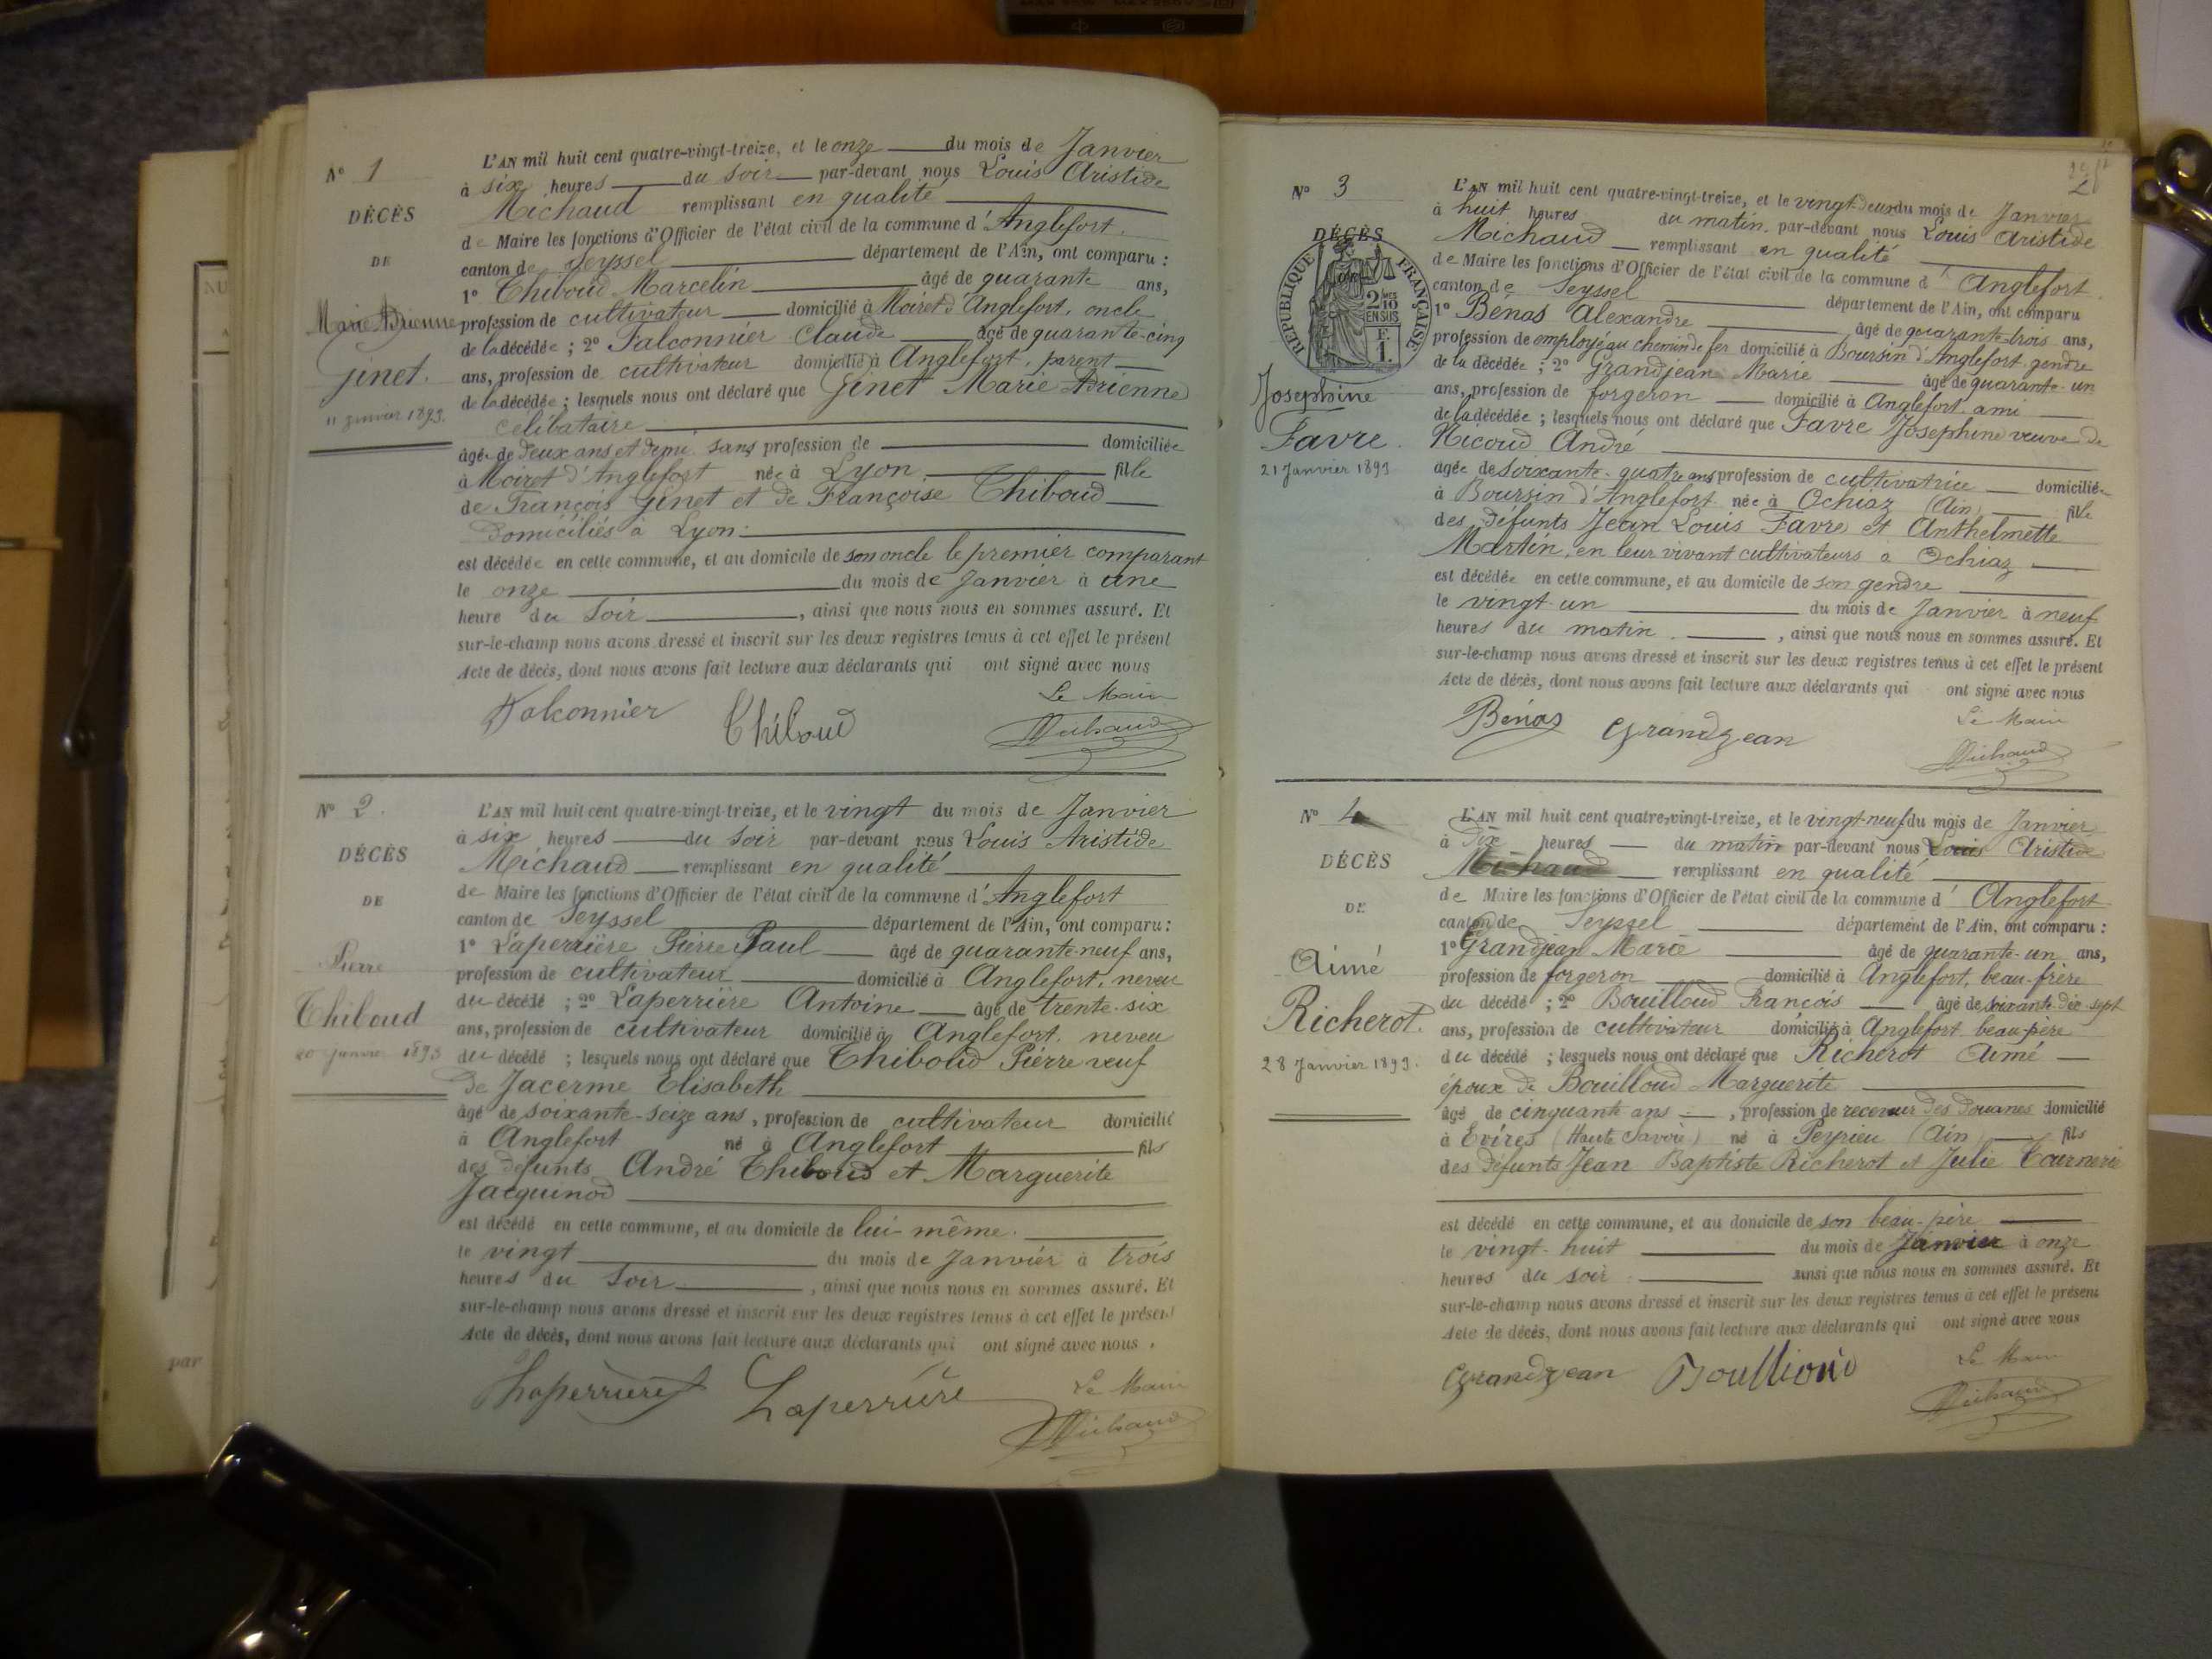 N° 1
DÉCÈS
DE
Marie Adrienne
Ginet.
11 janvier 1893.
L'AN mil huit cent quatre-vingt-treize, et le onze du mois de Janvier
à six heures du soir par-devant nous Louis Aristide
Michaud remplissant en qualité
de Maire les fonctions d'Officier de l'état civil de la commune d'Anglefort.
canton de Seyssel département de l'Ain, ont comparu :
1° Thiboud Marcelin âgé de quarante ans,
profession de cultivateur domicilié à Moiret d'Anglefort, oncle
de la décédée ; 2° Falconnier Claude âgé de quarante-cinq
ans, profession de cultivateur domicilié à Anglefort, parent
de la décédée ; lesquels nous ont déclaré que Ginet Marie Adrienne
célibataire
âgée de deux ans et demi sans profession de domiciliée
à Moiret d'Anglefort née à Lyon fille
de François Ginet et de Françoise Thiboud
domiciliés à Lyon.
est décédée en cette commune, et au domicile de son oncle le premier comparant
le onze du mois de Janvier à une
heure du soir, ainsi que nous nous en sommes assuré. Et
sur-le-champ nous avons dressé et inscrit sur les deux registres tenus à cet effet le présent
Acte de décès, dont nous avons fait lecture aux déclarants qui ont signé avec nous
Le Maire
Falconnier Thiboud Michaud
N° 2.
DÉCÈS
DE
Pierre
Thiboud
20 janvier 1893
L'AN mil huit cent quatre-vingt-treize, et le vingt du mois de Janvier
à six heures du soir par-devant nous Louis Aristide
Michaud remplissant en qualité
de Maire les fonctions d'Officier de l'état civil de la commune d'Anglefort
canton de Seyssel département de l'Ain, ont comparu :
1° Laperrière Pierre Paul âgé de quarante-neuf ans,
profession de cultivateur domicilié à Anglefort, neveu
du décédé ; 2° Laperrière Antoine âgé de trente-six
ans, profession de cultivateur domicilié à Anglefort, neveu
du décédé ; lesquels nous ont déclaré que Thiboud Pierre veuf
de Jacerme Elisabeth
âgé de soixante-seize ans, profession de cultivateur domicilié
à Anglefort né à Anglefort fils
des défunts André Thiboud et Marguerite
Jacquinod
est décédé en cette commune, et au domicile de lui-même.
le vingt du mois de Janvier à trois
heures du soir, ainsi que nous nous en sommes assuré. Et
sur-le-champ nous avons dressé et inscrit sur les deux registres tenus à cet effet le présent
Acte de décès, dont nous avons fait lecture aux déclarants qui ont signé avec nous.
Le Maire
Laperrière Laperrière Michaud
par
N° 3
DÉCÈS
RÉPUBLIQUE FRANÇAISE
2/10 EN SUS
F. 1.
Josephine
Favre.
21 Janvier 1893
L'AN mil huit cent quatre-vingt-treize, et le vingt-deux du mois de Janvier
à huit heures du matin, par-devant nous Louis Aristide
Michaud remplissant en qualité
de Maire les fonctions d'Officier de l'état civil de la commune d'Anglefort.
canton de Seyssel département de l'Ain, ont comparu
1° Bénas Alexandre âgé de quarante-trois ans,
profession de employé au chemin de fer domicilié à Boursin d'Anglefort gendre
de la décédée ; 2° Grandjean Marie âgé de quarante-un
ans, profession de forgeron domicilié à Anglefort ami
de la décédée ; lesquels nous ont déclaré que Favre Josephine veuve de
Nicoud André
âgée de soixante-quatre ans profession de cultivatrice domiciliée
à Boursin d'Anglefort née à Ochiaz (Ain) fille
des défunts Jean Louis Favre et Anthelmette
Martin, en leur vivant cultivateurs à Ochiaz
est décédée en cette commune, et au domicile de son gendre
le vingt-un du mois de Janvier à neuf
heures du matin, ainsi que nous nous en sommes assuré. Et
sur-le-champ nous avons dressé et inscrit sur les deux registres tenus à cet effet le présent
Acte de décès, dont nous avons fait lecture aux déclarants qui ont signé avec nous
Le Maire
Bénas Grandjean Michaud
N° 4
DÉCÈS
DE
Aimé
Richerot.
28 Janvier 1893.
L'AN mil huit cent quatre-vingt-treize, et le vingt-neuf du mois de Janvier
à dix heures du matin par-devant nous Louis Aristide
Michaud remplissant en qualité
de Maire les fonctions d'Officier de l'état civil de la commune d'Anglefort
canton de Seyssel département de l'Ain, ont comparu :
1° Grandjean Marie âgé de quarante-un ans,
profession de forgeron domicilié à Anglefort, beau-frère
du décédé ; 2° Bouilloud François âgé de soixante-dix-sept
ans, profession de cultivateur domicilié à Anglefort beau-père
du décédé ; lesquels nous ont déclaré que Richerot Aimé
époux de Bouilloud Marguerite
âgé de cinquante ans, profession de receveur des douanes domicilié
à Evires (Haute Savoie) né à Peyrieu (Ain) fils
des défunts Jean Baptiste Richerot et Julie Tournerie
est décédé en cette commune, et au domicile de son beau-père
le vingt-huit du mois de Janvier à onze
heures du soir ainsi que nous nous en sommes assuré. Et
sur-le-champ nous avons dressé et inscrit sur les deux registres tenus à cet effet le présent
Acte de décès, dont nous avons fait lecture aux déclarants qui ont signé avec nous
Le Maire
Grandjean Boullioud Michaud